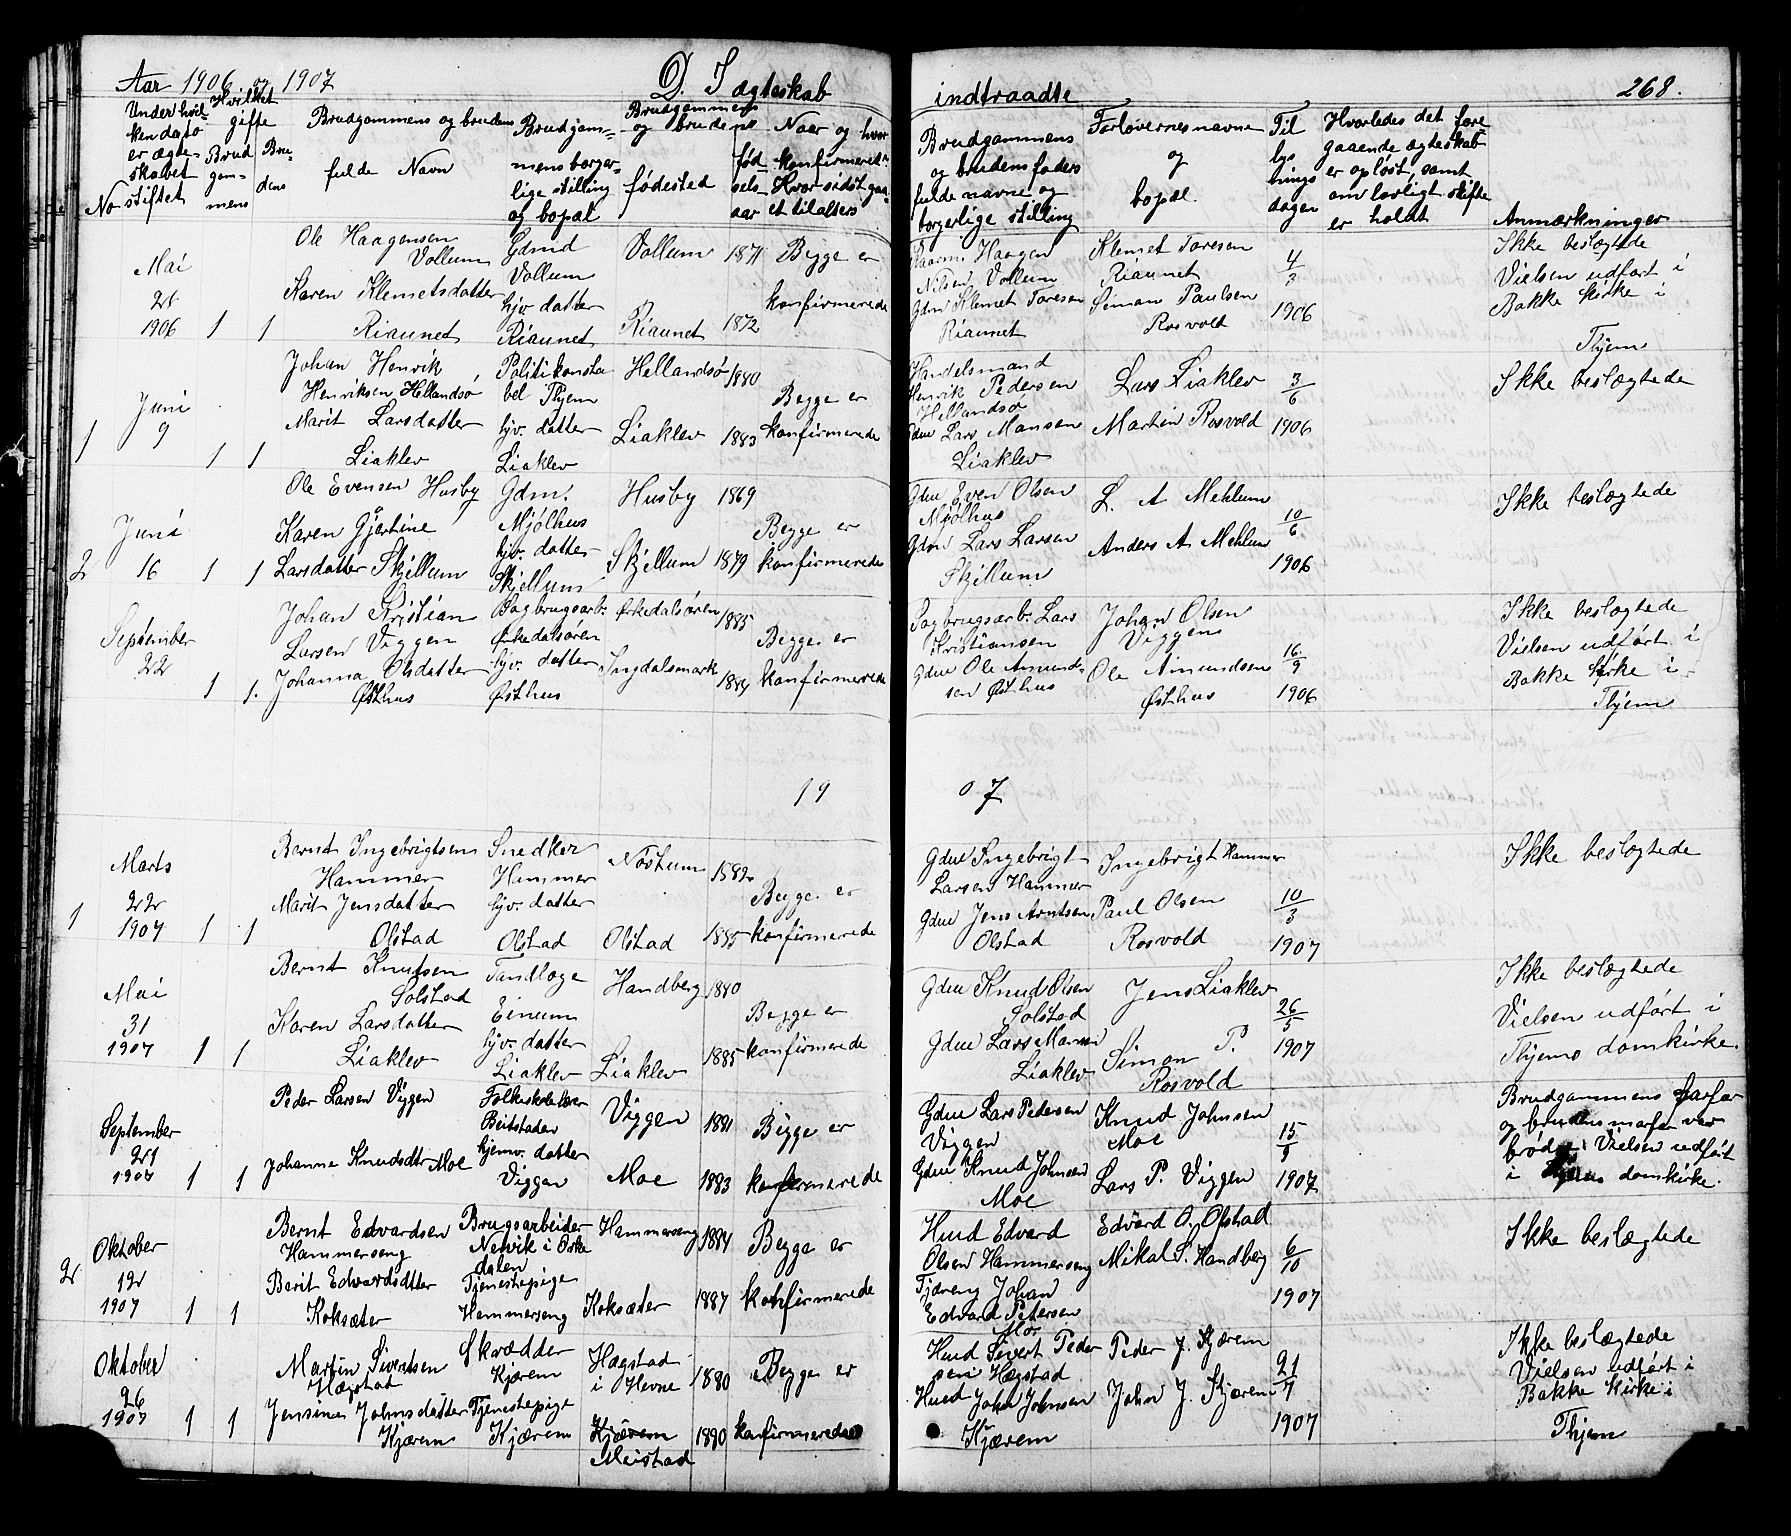 Aar 1906 og 1907
D. I ægteskab indtraadte
268.
No
Under hvil-
ken dato
er ægte-
skabet
stiftet
Hvilket
gifte
Brud
gom-
mens
Bru-
dens
Brudgommens og brudens
fulde Navn
Brudgom-
mens borger-
lige stilling
og bopæl
Brudgommens
og brudens
fødested
fød-
sels-
aar
Naar og hvor
konfirmeret?
Hvor sidst gaa-
et til alters
Brudgommens
og brudens faders
fulde navne og
borgerlige stilling
Forlovernes navne
og
bopæl.
Til
lys
nings
dagen
Hvorledes det fore
gaaende ægteskab
er opløst, samt
om lovligt skifte
er holdt
Anmærkninger
Mai
21
1906
1 1
Ole Haagensen
Vollum
Karen Klemetsdatter
Riaunet
Gdmd
Vollum
hjv. datter
Riaunet
Vollum 1871
Riaunet 1872
Begge er
konfirmerede
Haagen
Nilsen Vollum
Gdm Klemet Toresen
Riaunet
Klemet Toresen
Riaunet
Simon Paulsen
Rosvold
4/3
1906
Ikke beslægtede
Vielsen udført i
Bakke kirke i
Thjem
1
Juni
9
1 1
Johan Henrik
Henriksen Hellandsø
Marit Larsdatter
Liaklev
Politikonsta
bel Thjem
hjv. datter
Liaklev
Hellandsø 1880
Liaklev 1883
Begge er
konfirmerede
Handelsmand
Henrik Pedersen
Hellandsø
Gdm Lars Monsen
Liaklev
Lars Liaklev
Martin Rosvold
3/6
1906
Ikke beslægtede
2
Juni
16
1 1
Ole Evensen Husby
Karen Gjertine
Larsdatter Skjillum
Gdm.
Mjølhus
hjv. datter
Skjellum
Husby 1869
Skjillum 1879
Begge er
konfirmerede
Gdm Even Olsen
Mjølhus
Gdm Lars Larsen
Skjillum
L. A Mehlum
Anders A. Mehlum
10/6
1906
Ikke beslægtede
September
22
1 1.
Johan Kristian
Larsen Viggen
Johanna Olsdatter
Østhus
Sagbrugsarb.
Ørkedalsøren
hjv. datter
Østhus
Ørkedalsøren 1885
Ingdalsmark 1884
Begge er
konfirmerede
Sagbrugsarb. Lars
Kristiansen
Gdm Ole Amund-
sen Østhus
Johan Olsen
Viggens
Ole Amundsen
Østhus
16/9
1906
Ikke beslægtede
Vielsen udført i
Bakke kirke i
Thjem
19 07
1
Marts
22
1907
1 1
Bernt Ingebrigtsen
Hammer
Marit Jensdatter
Olstad
Snedker
Hammer
hjv. datter
Olstad
Nostum 1882
Olstad 1885
Begge er
konfirmerede
Gdm Ingebrigt
Larsen Hammer
Gdm Jens Arntsen
Olstad
Ingebrigt Hammer
Paul Olsen
Rosvold
10/3
1907
Ikke beslægtede
Mai
31
1907
1 1
Bernt Knutsen
Solstad
Karen Larsdatter
Liaklev
Tandlæge
Einum
hjv. datter
Liaklev
Handberg 1880
Liaklev 1885
Begge er
konfirmerede
Gdm Knud Olsen
Solstad
Gdm Lars Monsen
Liaklev
Jens Liaklev
Simon P.
Rosvold
26/5
1907
Ikke beslægtede
Vielsen udført i
Thjems domkirke.
September
21
1907
1 1
Peder Larsen Viggen
Johanne Knudsdtr Moe
Folkeskolelærer
Beitstaden
hjemv. datter
Viggen
Viggen 1881
Moe 1883
Begge er
konfirmerede
Gdm Lars Pedersen
Viggen
Gdm Knud Johnsen
Moe
Knud Johnsen
Moe
Lars P. Viggen
15/9
1907
Brudgommens farfar
og brudens morfar var
brødre. Vielsen udført
i Thjems domkirke.
2
Oktober
12
1907
1 1
Bernt Edvardsen
Hammerseng
Berit Edvardsdtter
Koksæter
Brugsarbeider
Nervik i Orke
dalen
Tjenestepige
Hammerseng
Hammerseng 1884
Koksæter 1887
Begge er
konfirmerede
Husd Edvard
Olsen Hammerseng
Johan
Edvard Petersen
Moe
Edvard O. Ofstad
Mikal S. Handberg
6/10
1907
Ikke beslægtede
Oktober
26
1907
1 1
Martin Sivertsen
Hægstad
Jensine Johnsdatter
Kjørem
Skrædder
Kjørem
Tjenestepige
Kjørem
Hægstad
i Hevne 1880
Kjørem
Meistad 1890
Begge er
konfirmerede
Husd Sivert Peder
sen Hægstad
Husd John Johnsen
Kjørem
Peder J. Kjørem
John J. Kjørem
21/7
1907
Ikke beslægtede
Vielsen udført i
Bakke kirke i
Thjem